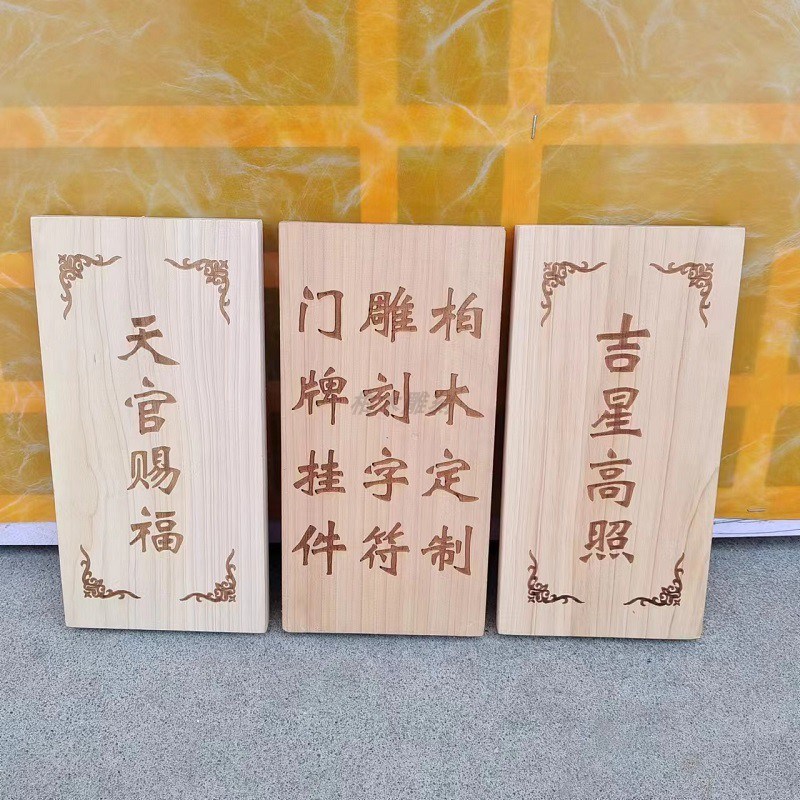 天官赐福
柏木定制
雕刻字符
门牌挂件
吉星高照